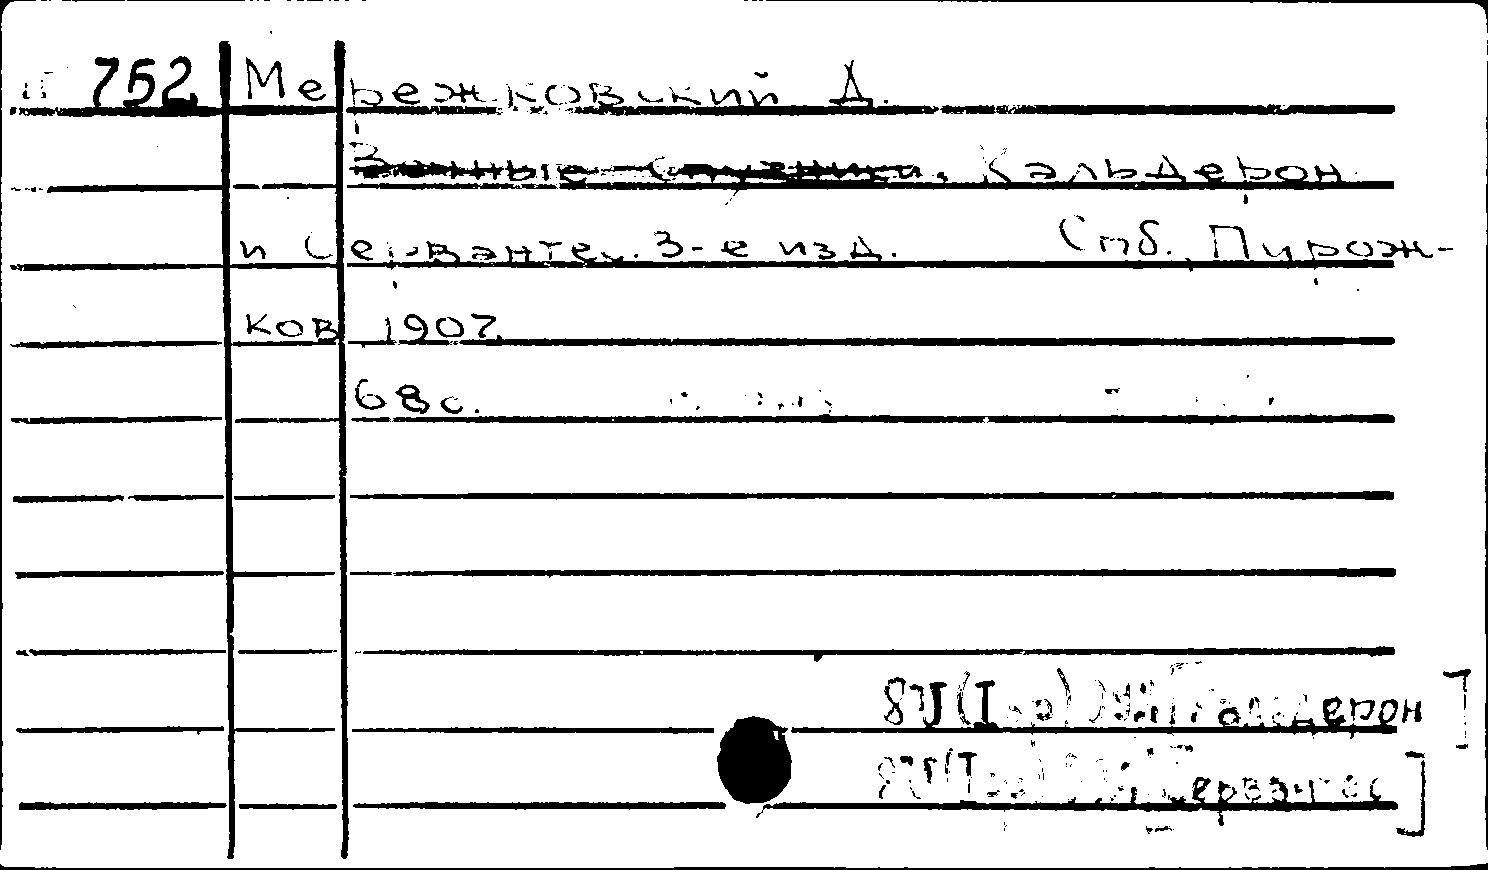 752 Мережковский Д.
Вечные спутники. Кальдерон
и Сервантес. 3-е изд. Спб., Пирож-
ков 1907.
68 с.
Кальдерон]
Сервантес]